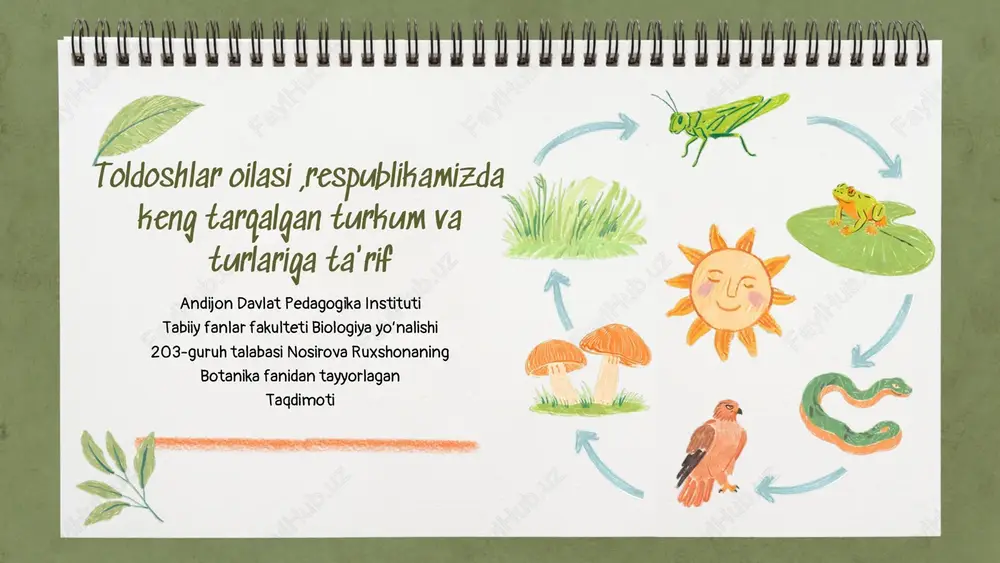 Toldoshlar oilasi ,respublikamizda
keng tarqalgan turkum va
turlariga ta'rif
Andijon Davlat Pedagogika Instituti
Tabiiy fanlar fakulteti Biologiya yo‘nalishi
203-guruh talabasi Nosirova Ruxshonaning
Botanika fanidan tayyorlagan
Taqdimoti
FaylHub.uz